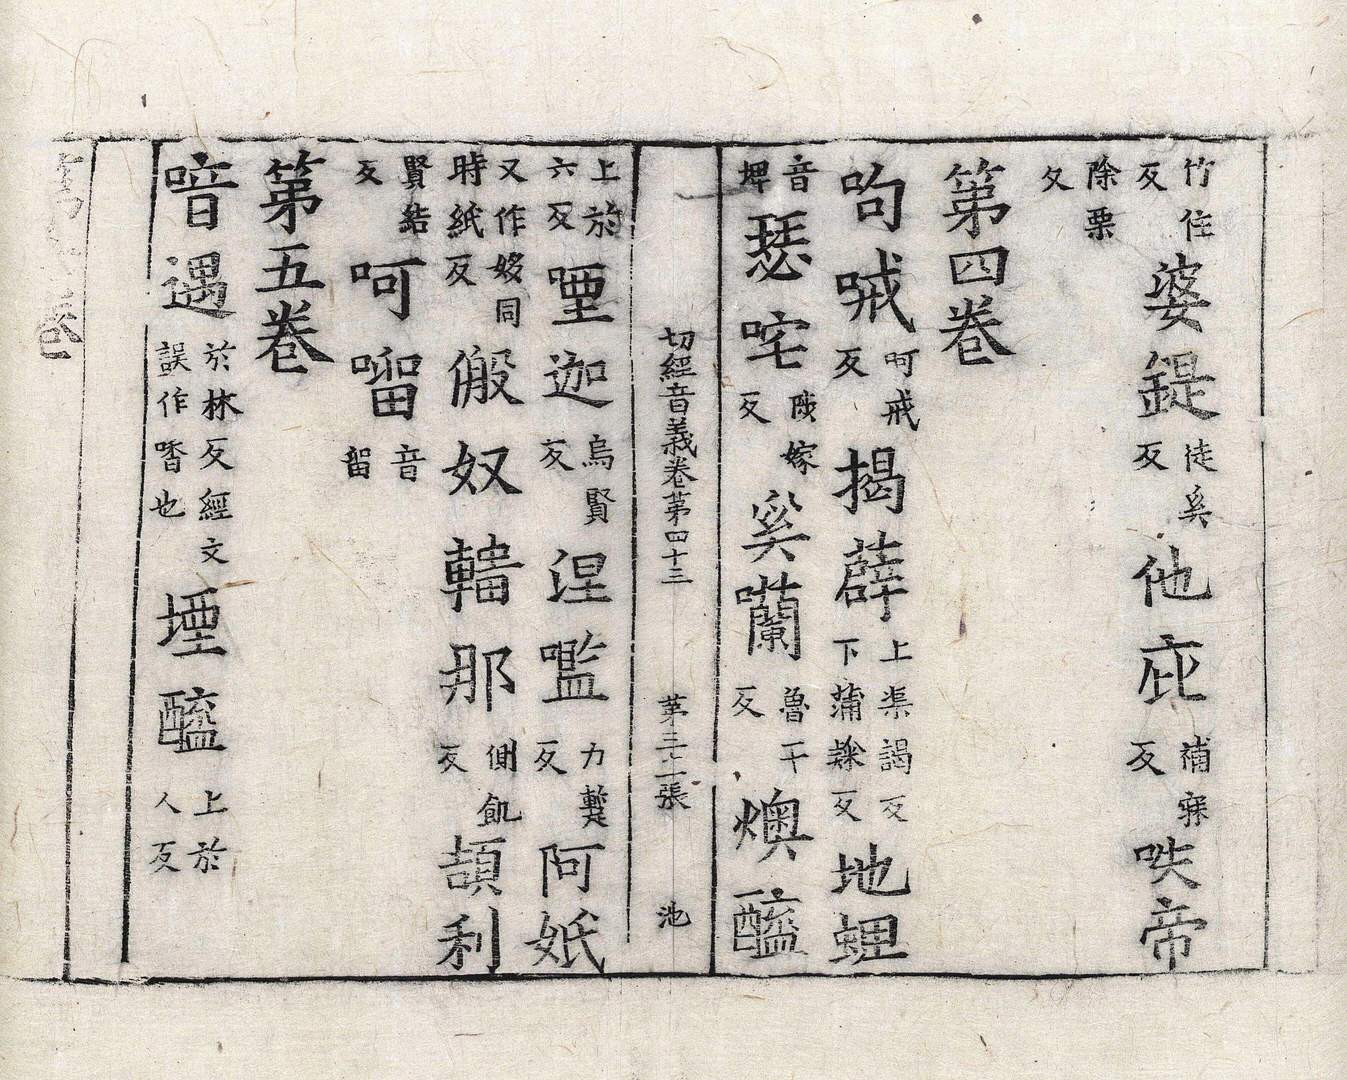 竹住反婆鍉徒奚反他庇補寐反呹帝
除栗反
第四卷
呴㖑呵戒反揭薜上渠謁反下蒲𥻦反地蜱
音埤瑟咤陟嫁反奚囒魯干反燠醯
切經音義卷第四十三 第三十二張 池
上於六反堙迦烏賢反涅㘕力䵼反阿妷
又作姼同時紙反㑫奴𨎵那側飢反頡利
賢結反呵㗉音留
第五卷
喑遇於林反經文誤作㖧也堙醯上於人反